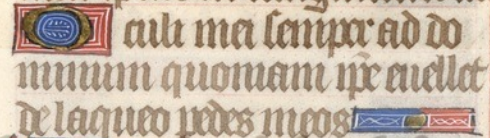 Oculi mei semper ad do
minum quoniam ipe euellet
de laqueo pedes meos